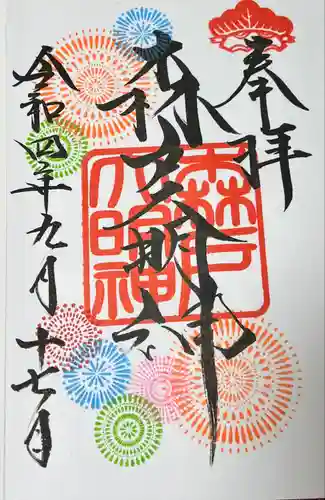 奉拝
森戸大明神
令和四年九月十七日
森戸大明神